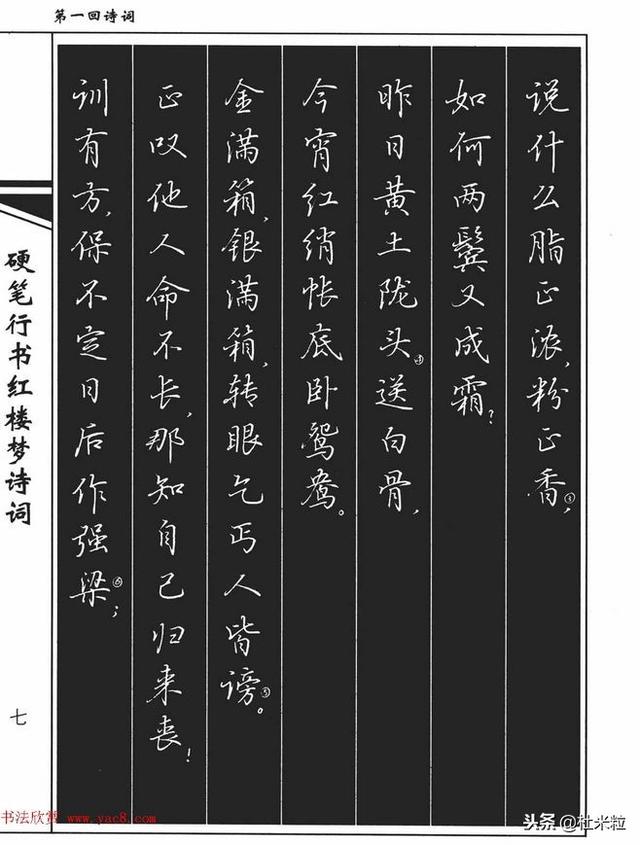 第一回诗词
说什么脂正浓,粉正香③,
如何两鬓又成霜?
昨日黄土陇头④送白骨,
今宵红绡帐底卧鸳鸯。
金满箱,银满箱,转眼乞丐人皆谤⑤。
正叹他人命不长,那知自己归来丧!
训有方,保不定日后作强梁⑥;
硬笔行书红楼梦诗词
七
书法欣赏 www.yac8.com
头条@杜米粒